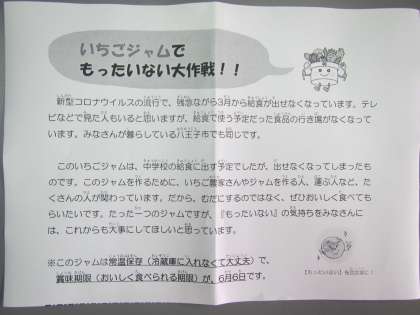 いちごジャムで
もったいない大作戦！！
新型コロナウイルスの流行で、残念ながら3月から給食が出せなくなっています。テレ
ビなどで見た人もいると思いますが、給食で使う予定だった食品の行き場がなくなって
います。みなさんが暮らしている八王子市でも同じです。
このいちごジャムは、中学校の給食に出す予定でしたが、出せなくなってしまったも
のです。このジャムを作るために、いちご農家さんやジャムを作る人、運ぶ人など、た
くさんの人が関わっています。だから、むだにするのではなく、ぜひおいしく食べても
らいたいです。たった一つのジャムですが、『もったいない』の気持ちをみなさんに
は、これからも大事にしてほしいと思っています。
※このジャムは常温保存（冷蔵庫に入れなくて大丈夫）で、
賞味期限（おいしく食べられる期限）が、6月6日です。